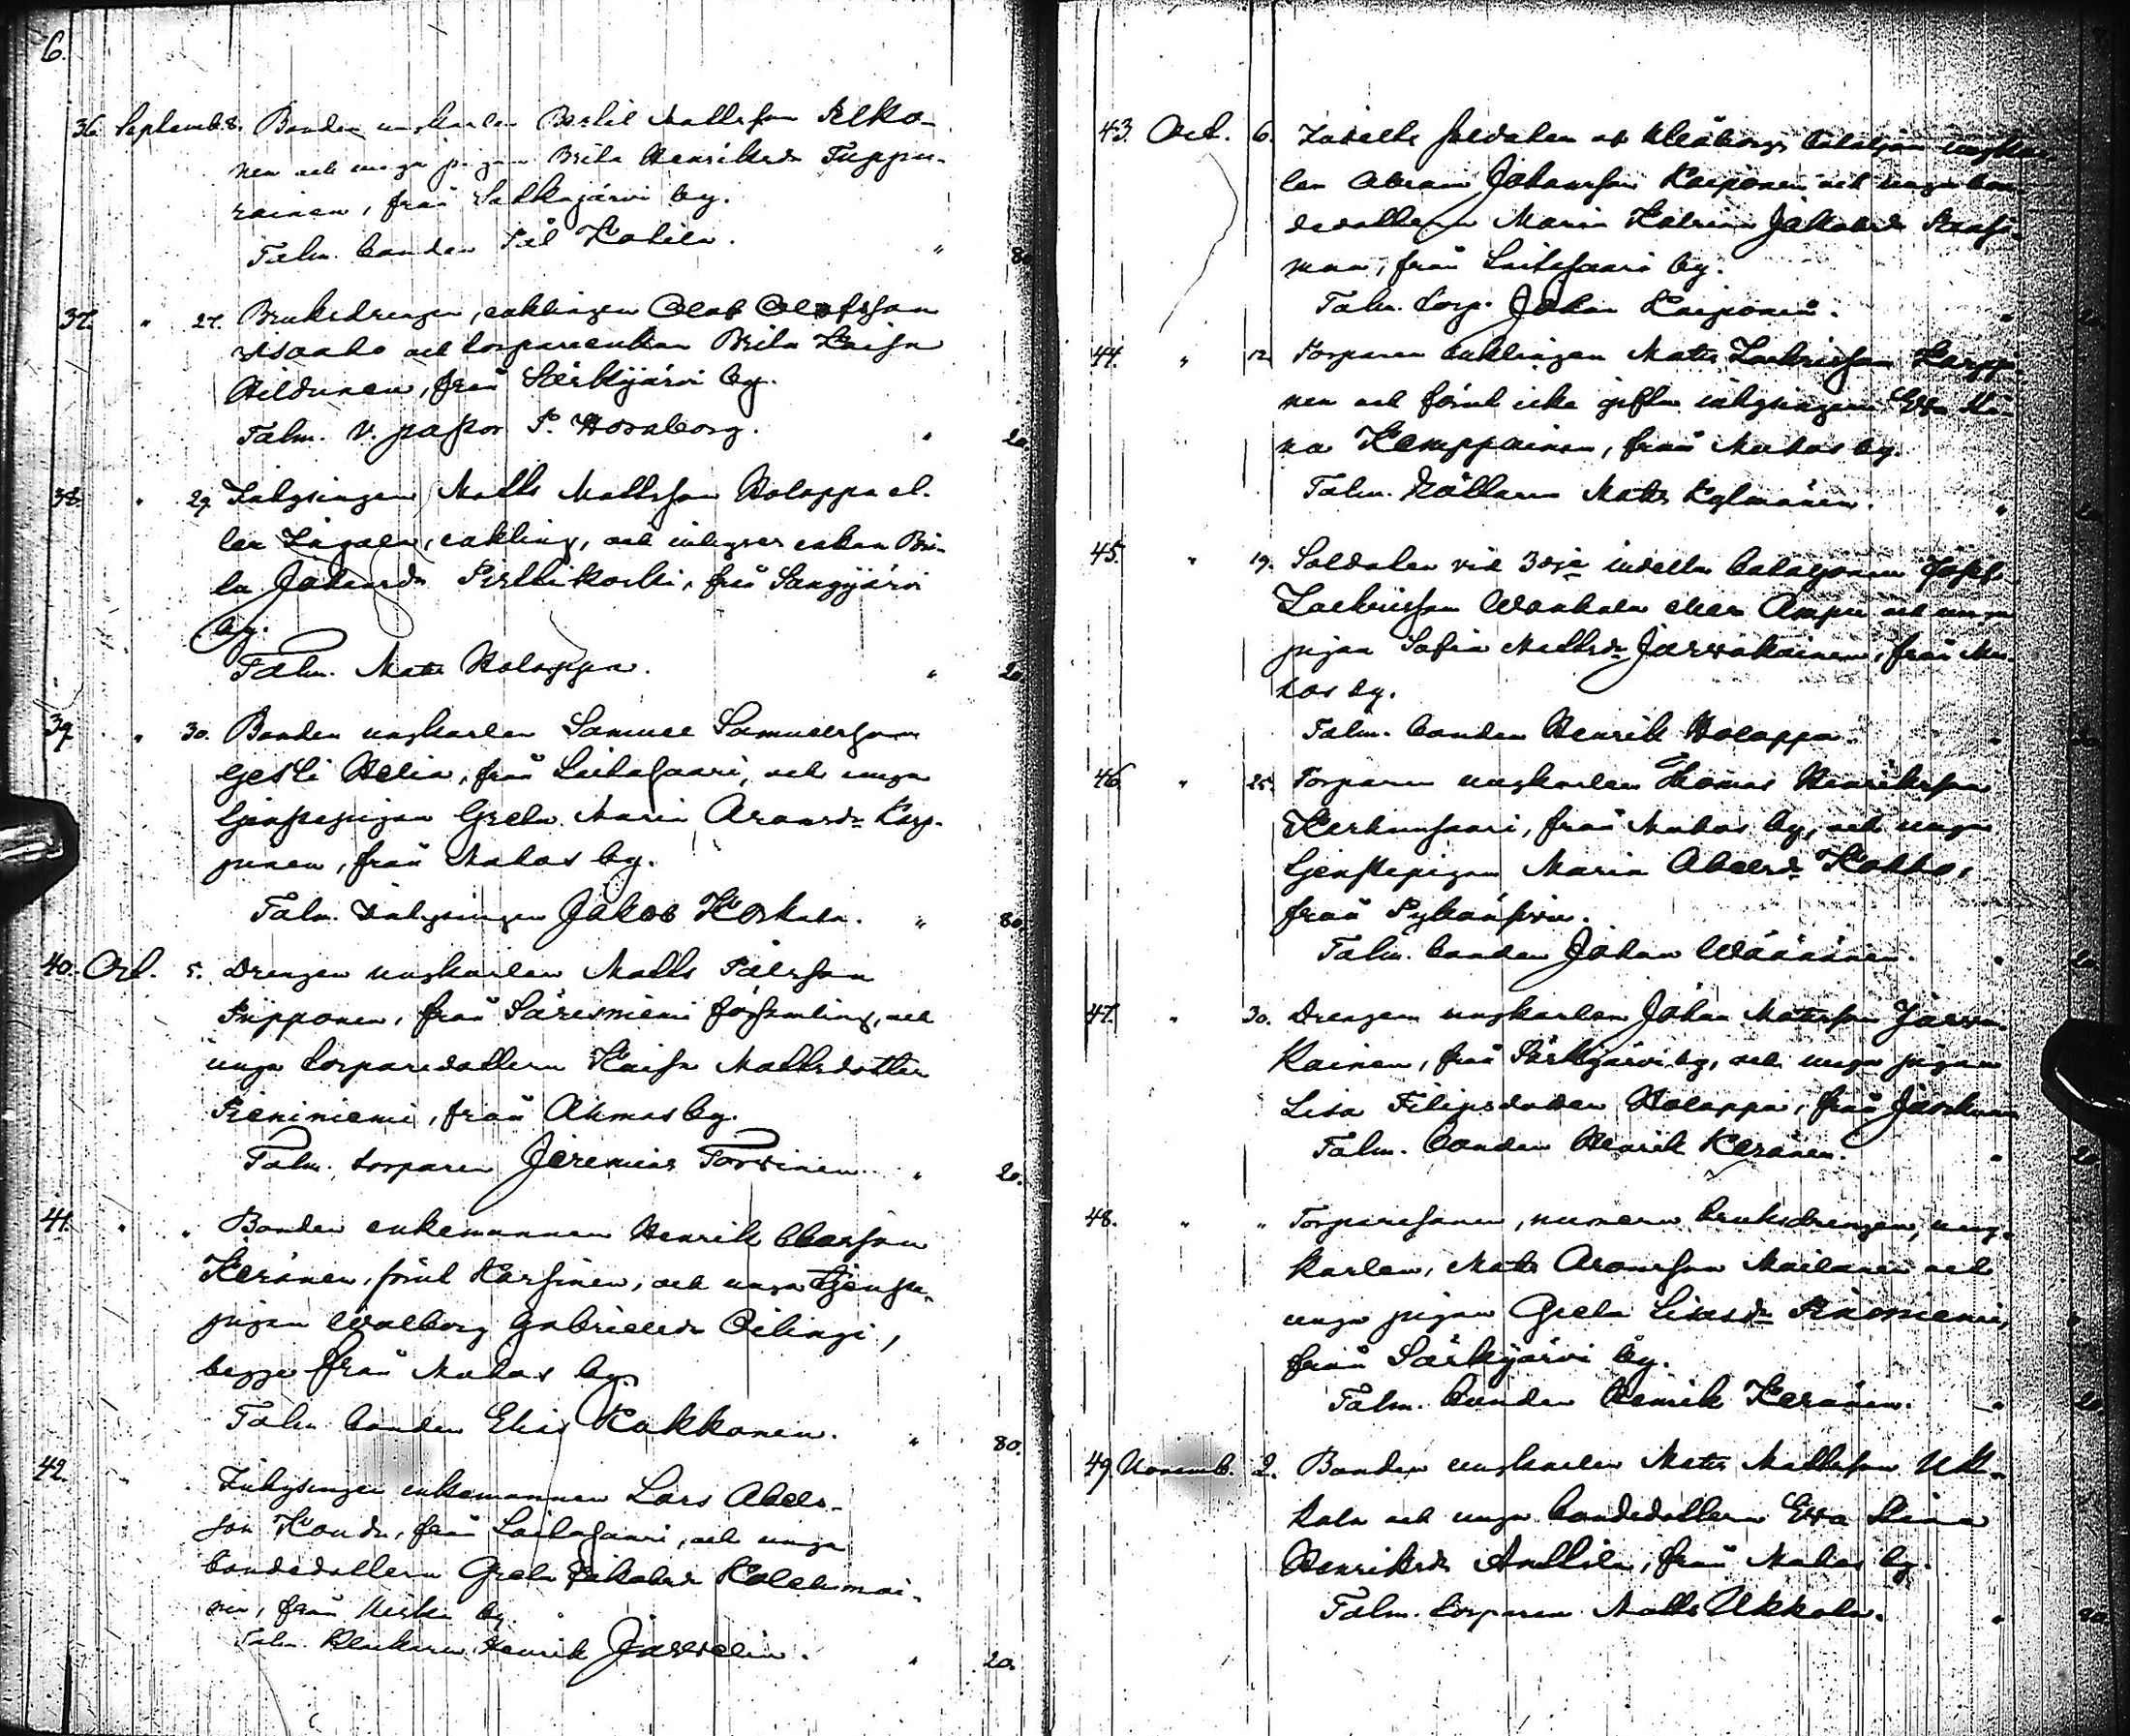 6.
36. Septemb. 8. Bonden ungkarlen Bertil Mattsson Pelko-
nen och unga pigan Brita Henriksdr Tuppu-
rainen, från Sakkajärvi by.
Talm. bonden Pål Kotila. " 80
37. " 27. Bruksdrengen, enklingen Olof Olofsson
och torpareenkan Brita Kaisa
från Särkijärvi by.
Talm. V. pastor P. Hornborg. " 20
38. " 29. Inhysingen Matts Mattsson Holappa el-
ler enkling, och inhyses enkan Bri-
ta Johansdr Perttikoski, från Sangijärvi
by.
Talm. Mats Holappa. " 20
39. " 30. Bonden ungkarlen Samuel Samuelsson
Yesti Helia, från Laitasaari, och unga
tjenstepigan Greta Maria Aronsdr Karp-
pinen, från Muhos by.
Talm. Inhysingen Jakob Koskela. " 80.
40. Oct. 5. Drengen ungkarlen Matts Pålsson
Piipponen, från Säresniemi församling, och
unga torparedottern Kaisa Mattsdotter
Pieniniemi, från Ahmas by.
Talm. torparen Jeremias Torvinen. " 20.
41. " " Bonden enkemannen Henrik Olofsson
Keränen, förut Karsinen, och unga tjenste-
pigan Walborg Gabrielsdr Pilingi,
begge från Muhos by.
Talm. bonden Elias Kokkonen. " 80.
42. " Inhysingen enkemannen Lars Abels-
son från Laitasaari, och unga
bondedottern Greta Jakobsdr Kolehmai-
nen, från by.
Talm. Klockaren Henrik Jarvelin. " 20.
43. Oct. 6. Indelte soldaten af Uleåborgs bataljon ungkar-
len Abram Johansson Kaiponen och unga bon-
dedottern Maria Katrina Jakobsdr
från Laitasaari by.
Talm. torp. Johan Kaiponen. "
44. " 12. Torparen enklingen Mats Zachrisson Karppi-
nen och förut icke gifta inhysingen Eva Sti-
na Kemppainen, från Muhos by.
Talm. Källaren Mats Kylmänen. "
45. " 19. Soldaten vid 3dje indelta bataljonen Josef
Zachrisson Wanhala eller och unga
pigan Sofia Mattsdr Jarvakainen, från Mu-
hos by.
Talm. bonden Henrik Holappa. "
46. " 25. Torparen ungkarlen Thomas Henriksson
Kerkunsaari, från Muhos by, och unga
tjenstepigan Maria Abelsdr Kokko,
från Pyhänsivu.
Talm. bonden Johan Wäänänen. "
47. " 30. Drengen ungkarlen Johan Matsson Jarva-
kainen, från Särkijärvi by, och unga pigan
Lisa Filipsdotter Holappa, från
Talm. bonden Henrik Keränen. " 20
48. " " Torparesonen, numera bruksdrengen, ung-
karlen, Mats Aronsson Mailanen och
unga pigan Greta Lisa
från Särkijärvi by.
Talm. bonden Henrik Keränen. " 20
49. Novemb. 2. Bonden ungkarlen Mats Mattsson Uk-
kola och unga bondedottern Eva Stina
Henriksdr Anttila, från Muhos by.
Talm. torparen Matts Ukkola. "